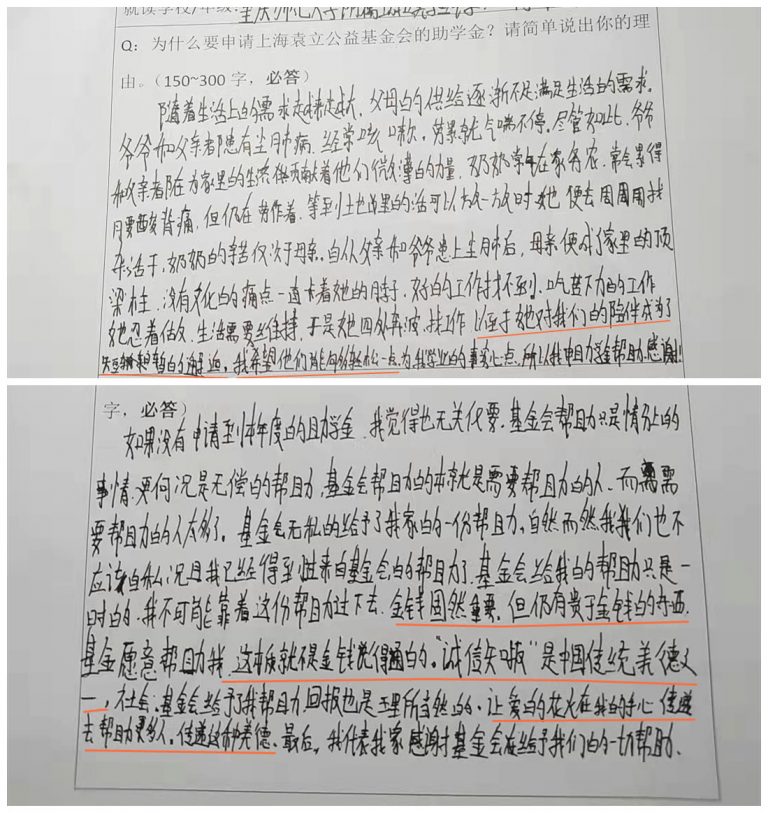 Q: 为什么要申请上海袁立公益基金会的助学金？请简单说出你的理
由。（150~300 字，必答）
随着生活上的需求越来越大，父母的供给逐渐不足满足生活的需求。
爷爷和父亲都患有尘肺病，经常咳嗽，劳累就气喘不停。尽管如此，爷爷
和父亲都在为家里的生活贡献着他们微薄的力量，奶奶常年在家务农，常会累得
腰酸背痛，但仍在劳作着，等到土地里的活可以放一放时她便去周围找
杂活干，奶奶的辛苦仅次于母亲。自从父亲和爷爷患上尘肺后，母亲便成了家里的顶
梁柱，没有文化的痛点一直卡着她的脖子，好的工作找不到，吃苦力的工作
她忍着做，生活需要维持，于是她四处奔波，找工作，以至于她对我们的陪伴成为了
我希望他们能够轻松一点，为我学业的事省心点，所以我申请助学金帮助，感谢！
字，必答）
如果没有申请到本年度的助学金，我觉得也无关紧要，基金会帮助只是情分上的
事情，更何况是无偿的帮助，基金会帮助的本就是需要帮助的人，而需
要帮助的人太多了。基金会无私的给予了我家的一份帮助，自然而然我们也不
应该自私，况且我已经得到过来自基金会的帮助了，基金会给我的帮助只是一
时的，我不可能靠着这份帮助过下去，金钱固然重要，但仍有贵于金钱的东西，
基金愿意帮助我，这本质就不是金钱说得通的。“诚信矢报”是中国传统美德之
一，在社会，基金会给予我帮助，回报也是理所当然的，让爱的花火在我的手心传递
去帮助更多人，传递这种美德。最后，我代表我家感谢基金会在给予我们的一切帮助。